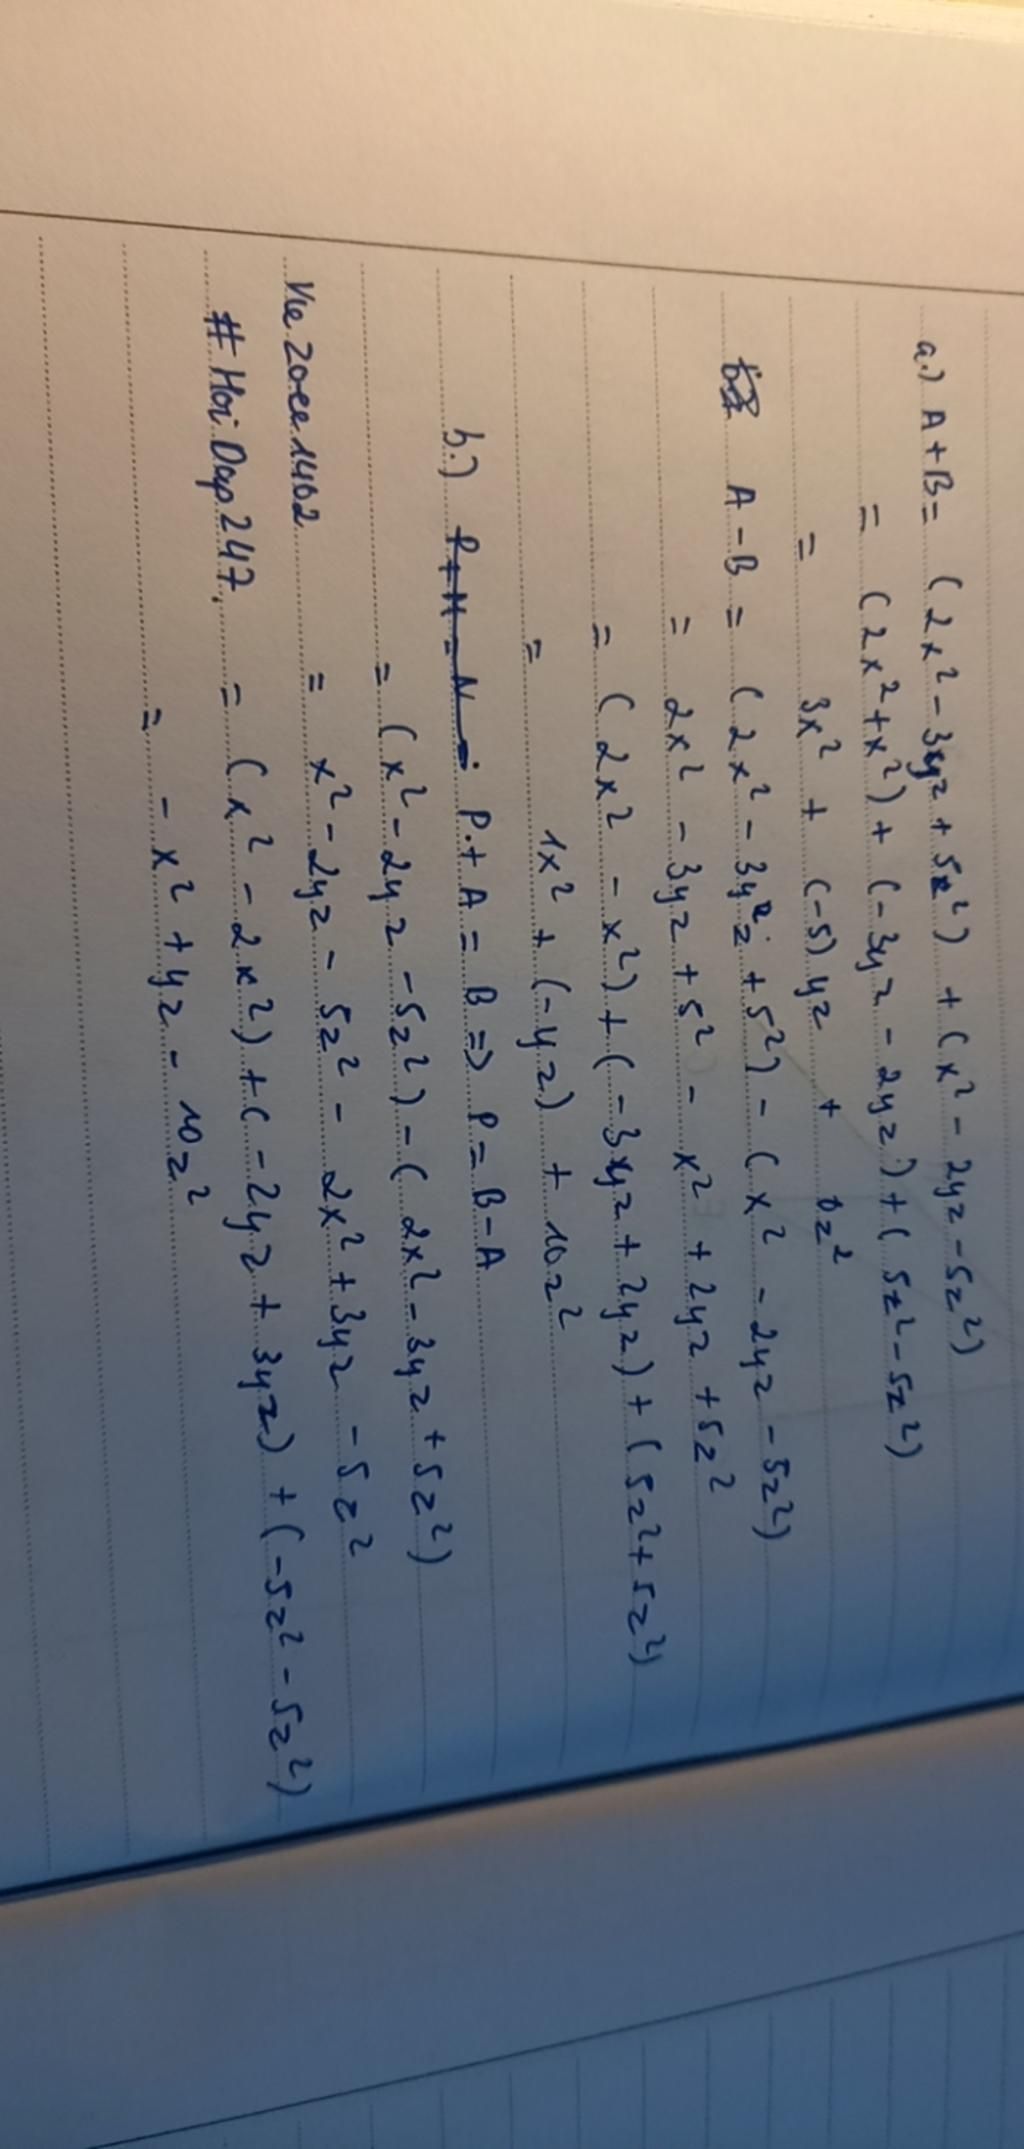 a.) A + B = (2x² - 3yz + 5z²) + (x² - 2yz - 5z²)
= (2x² + x²) + (-3yz - 2yz) + (5z² - 5z²)
= 3x² + (-5) yz + 0z²
A - B = (2x² - 3yz + 5²) - (x² - 2yz - 5z²)
= 2x² - 3yz + 5² - x² + 2yz + 5z²
= (2x² - x²) + (-3yz + 2yz) + (5z² + 5z²)
= 1x² + (-yz) + 10z²
b.) P + M = N P + A = B => P = B - A
= (x² - 2yz - 5z²) - (2x² - 3yz + 5z²)
= x² - 2yz - 5z² - 2x² + 3yz - 5z²
# Hoi Dap 247. = (x² - 2x²) + (-2yz + 3yz) + (-5z² - 5z²)
= - x² + yz - 10z²